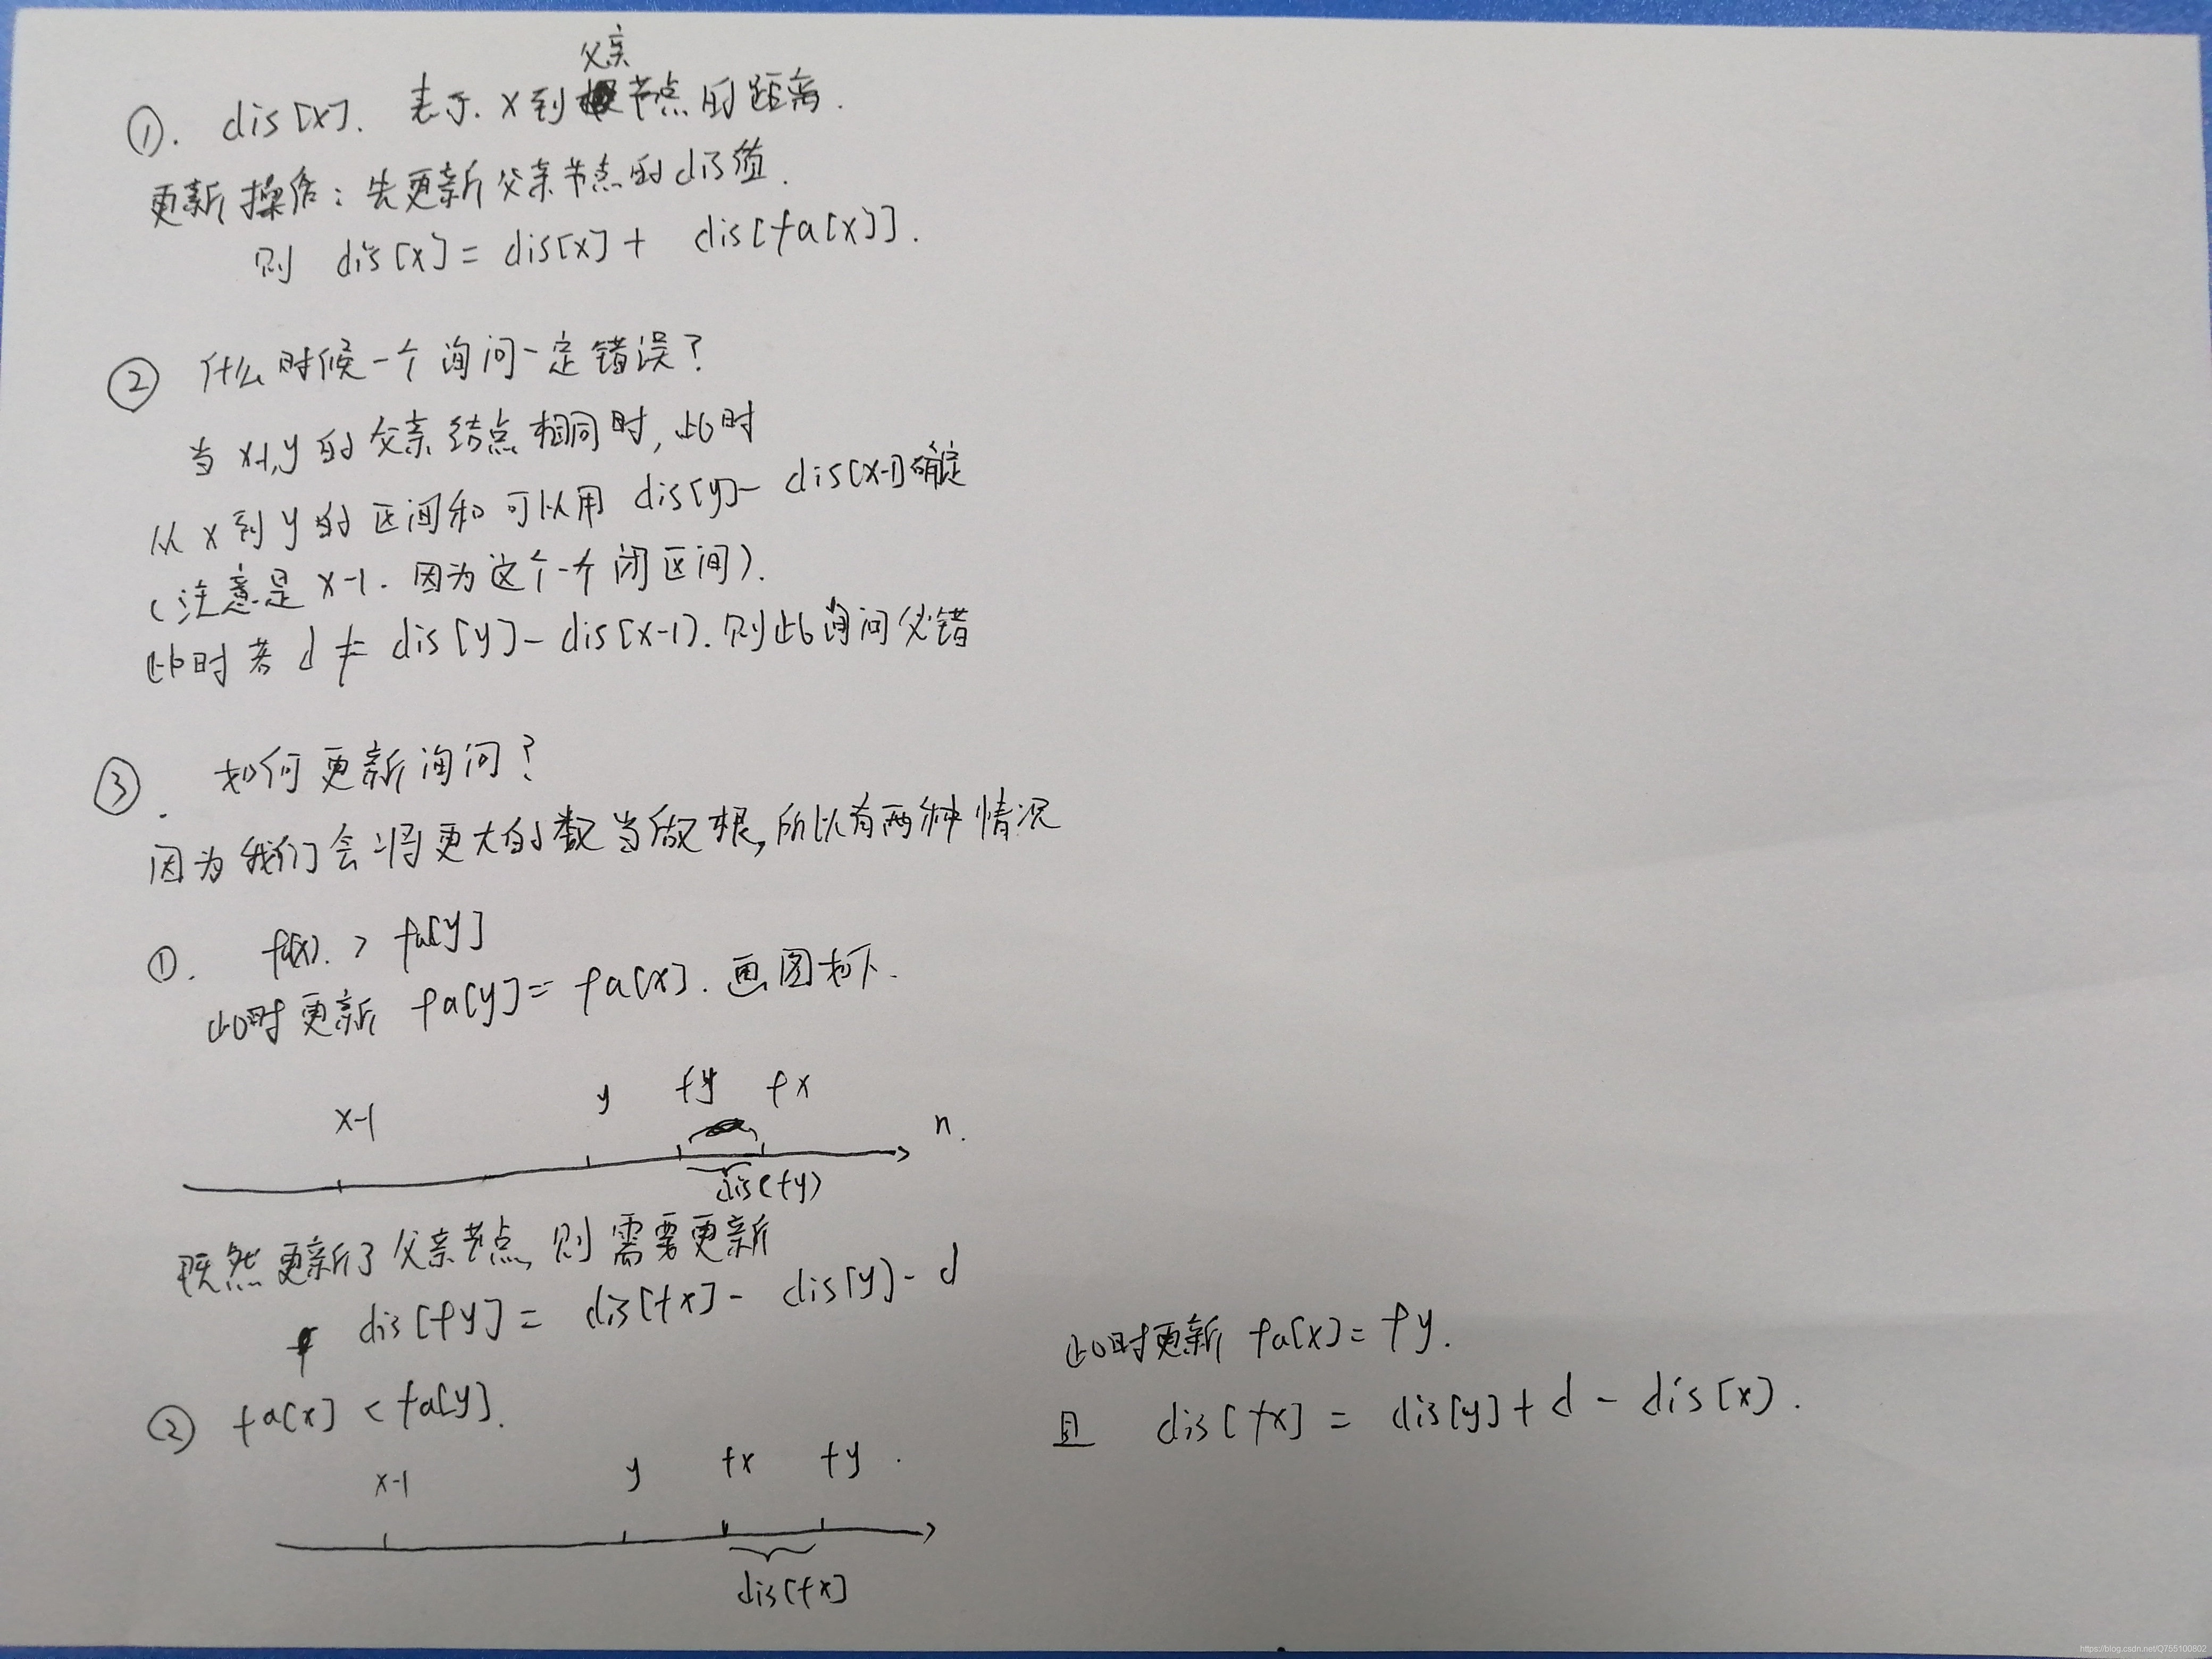 父亲
①. dis[x]. 表示 x到节点的距离.
更新操作:先更新父亲节点的dis值.
则 dis[x] = dis[x] + dis[fa[x]].
② 什么时候一个询问一定错误?
当 x-1,y的父亲结点相同时,此时
从x到y的区间和可以用 dis[y]- dis[x-1]确定
(注意是 x-1. 因为这个一个闭区间).
此时若 d ≠ dis[y] - dis[x-1]. 则此询问必错
③. 如何更新询问?
因为我们会将更大的数当做根,所以有两种情况
①. fa[x]. > fa[y]
此时更新 fa[y] = fa[x]. 画图如下.
x-1 y fy fx n.
dis(fy)
既然更新了父亲节点,则需要更新
dis[fy] = dis[fx] - dis[y] - d
② fa[x] < fa[y].
x-1 y fx fy.
dis[fx]
此时更新 fa[x] = fy.
且 dis[fx] = dis[y] + d - dis[x].
https://blog.csdn.net/Q755100802